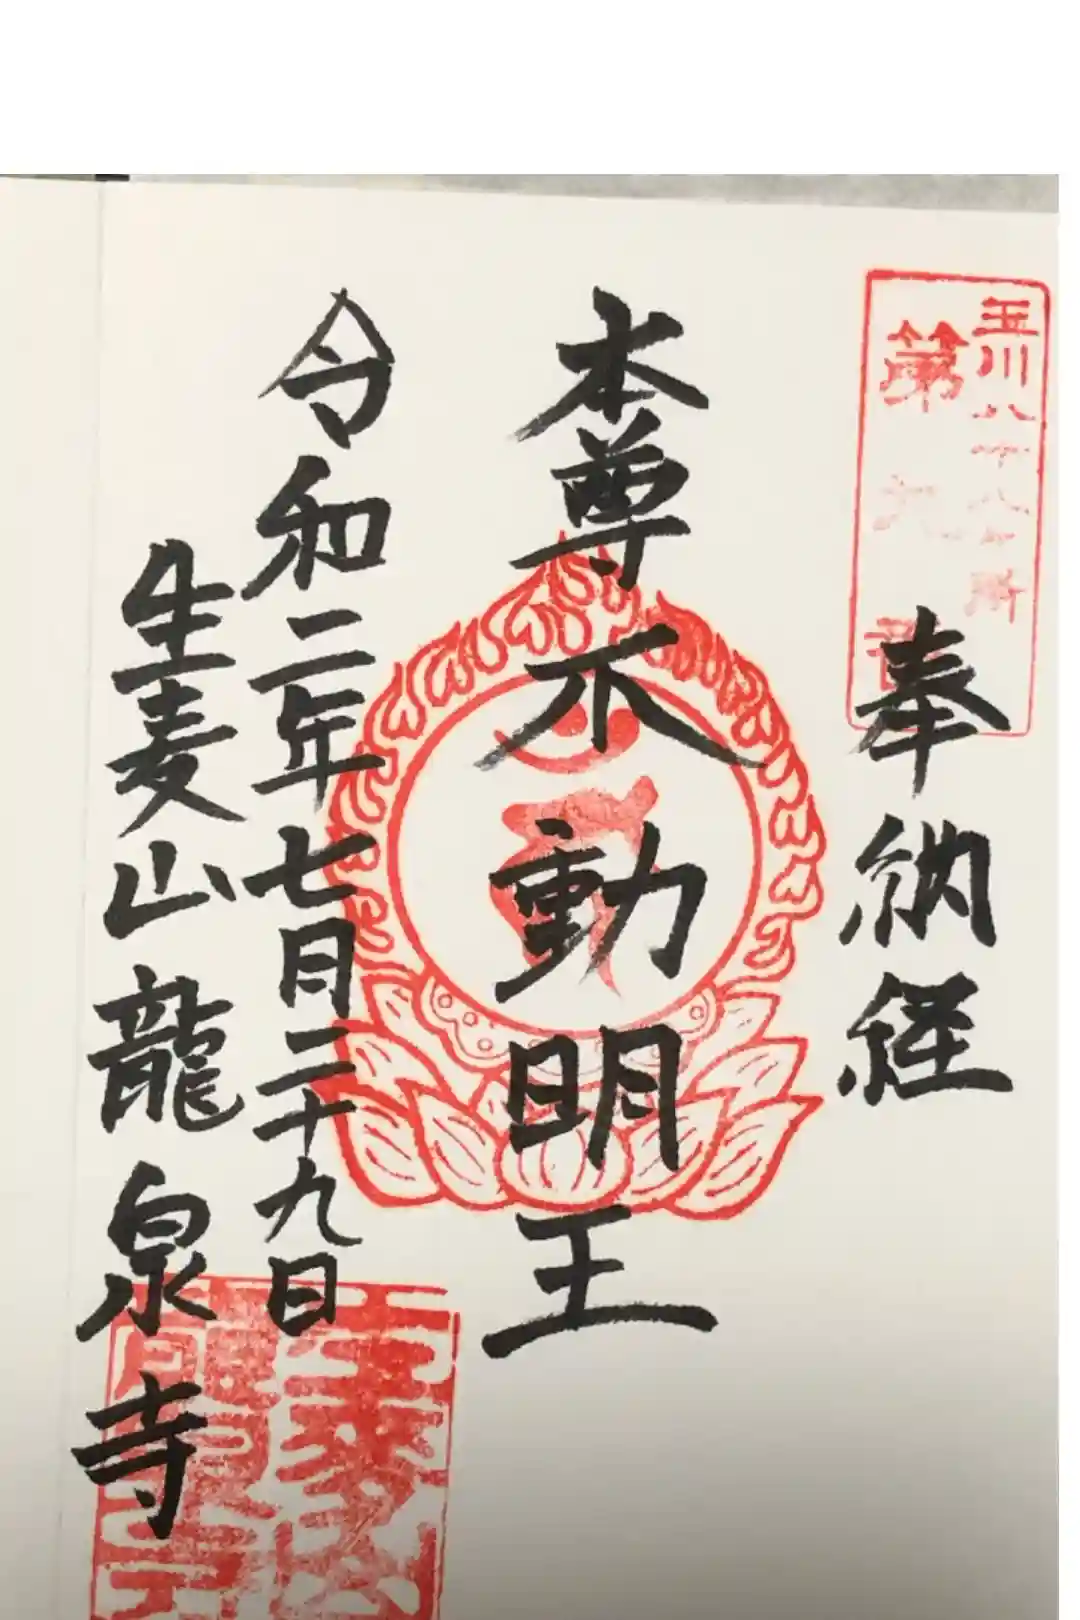 玉川八十八ヶ所
第九番
奉納経
本尊不動明王
令和二年七月二十九日
生麦山龍泉寺